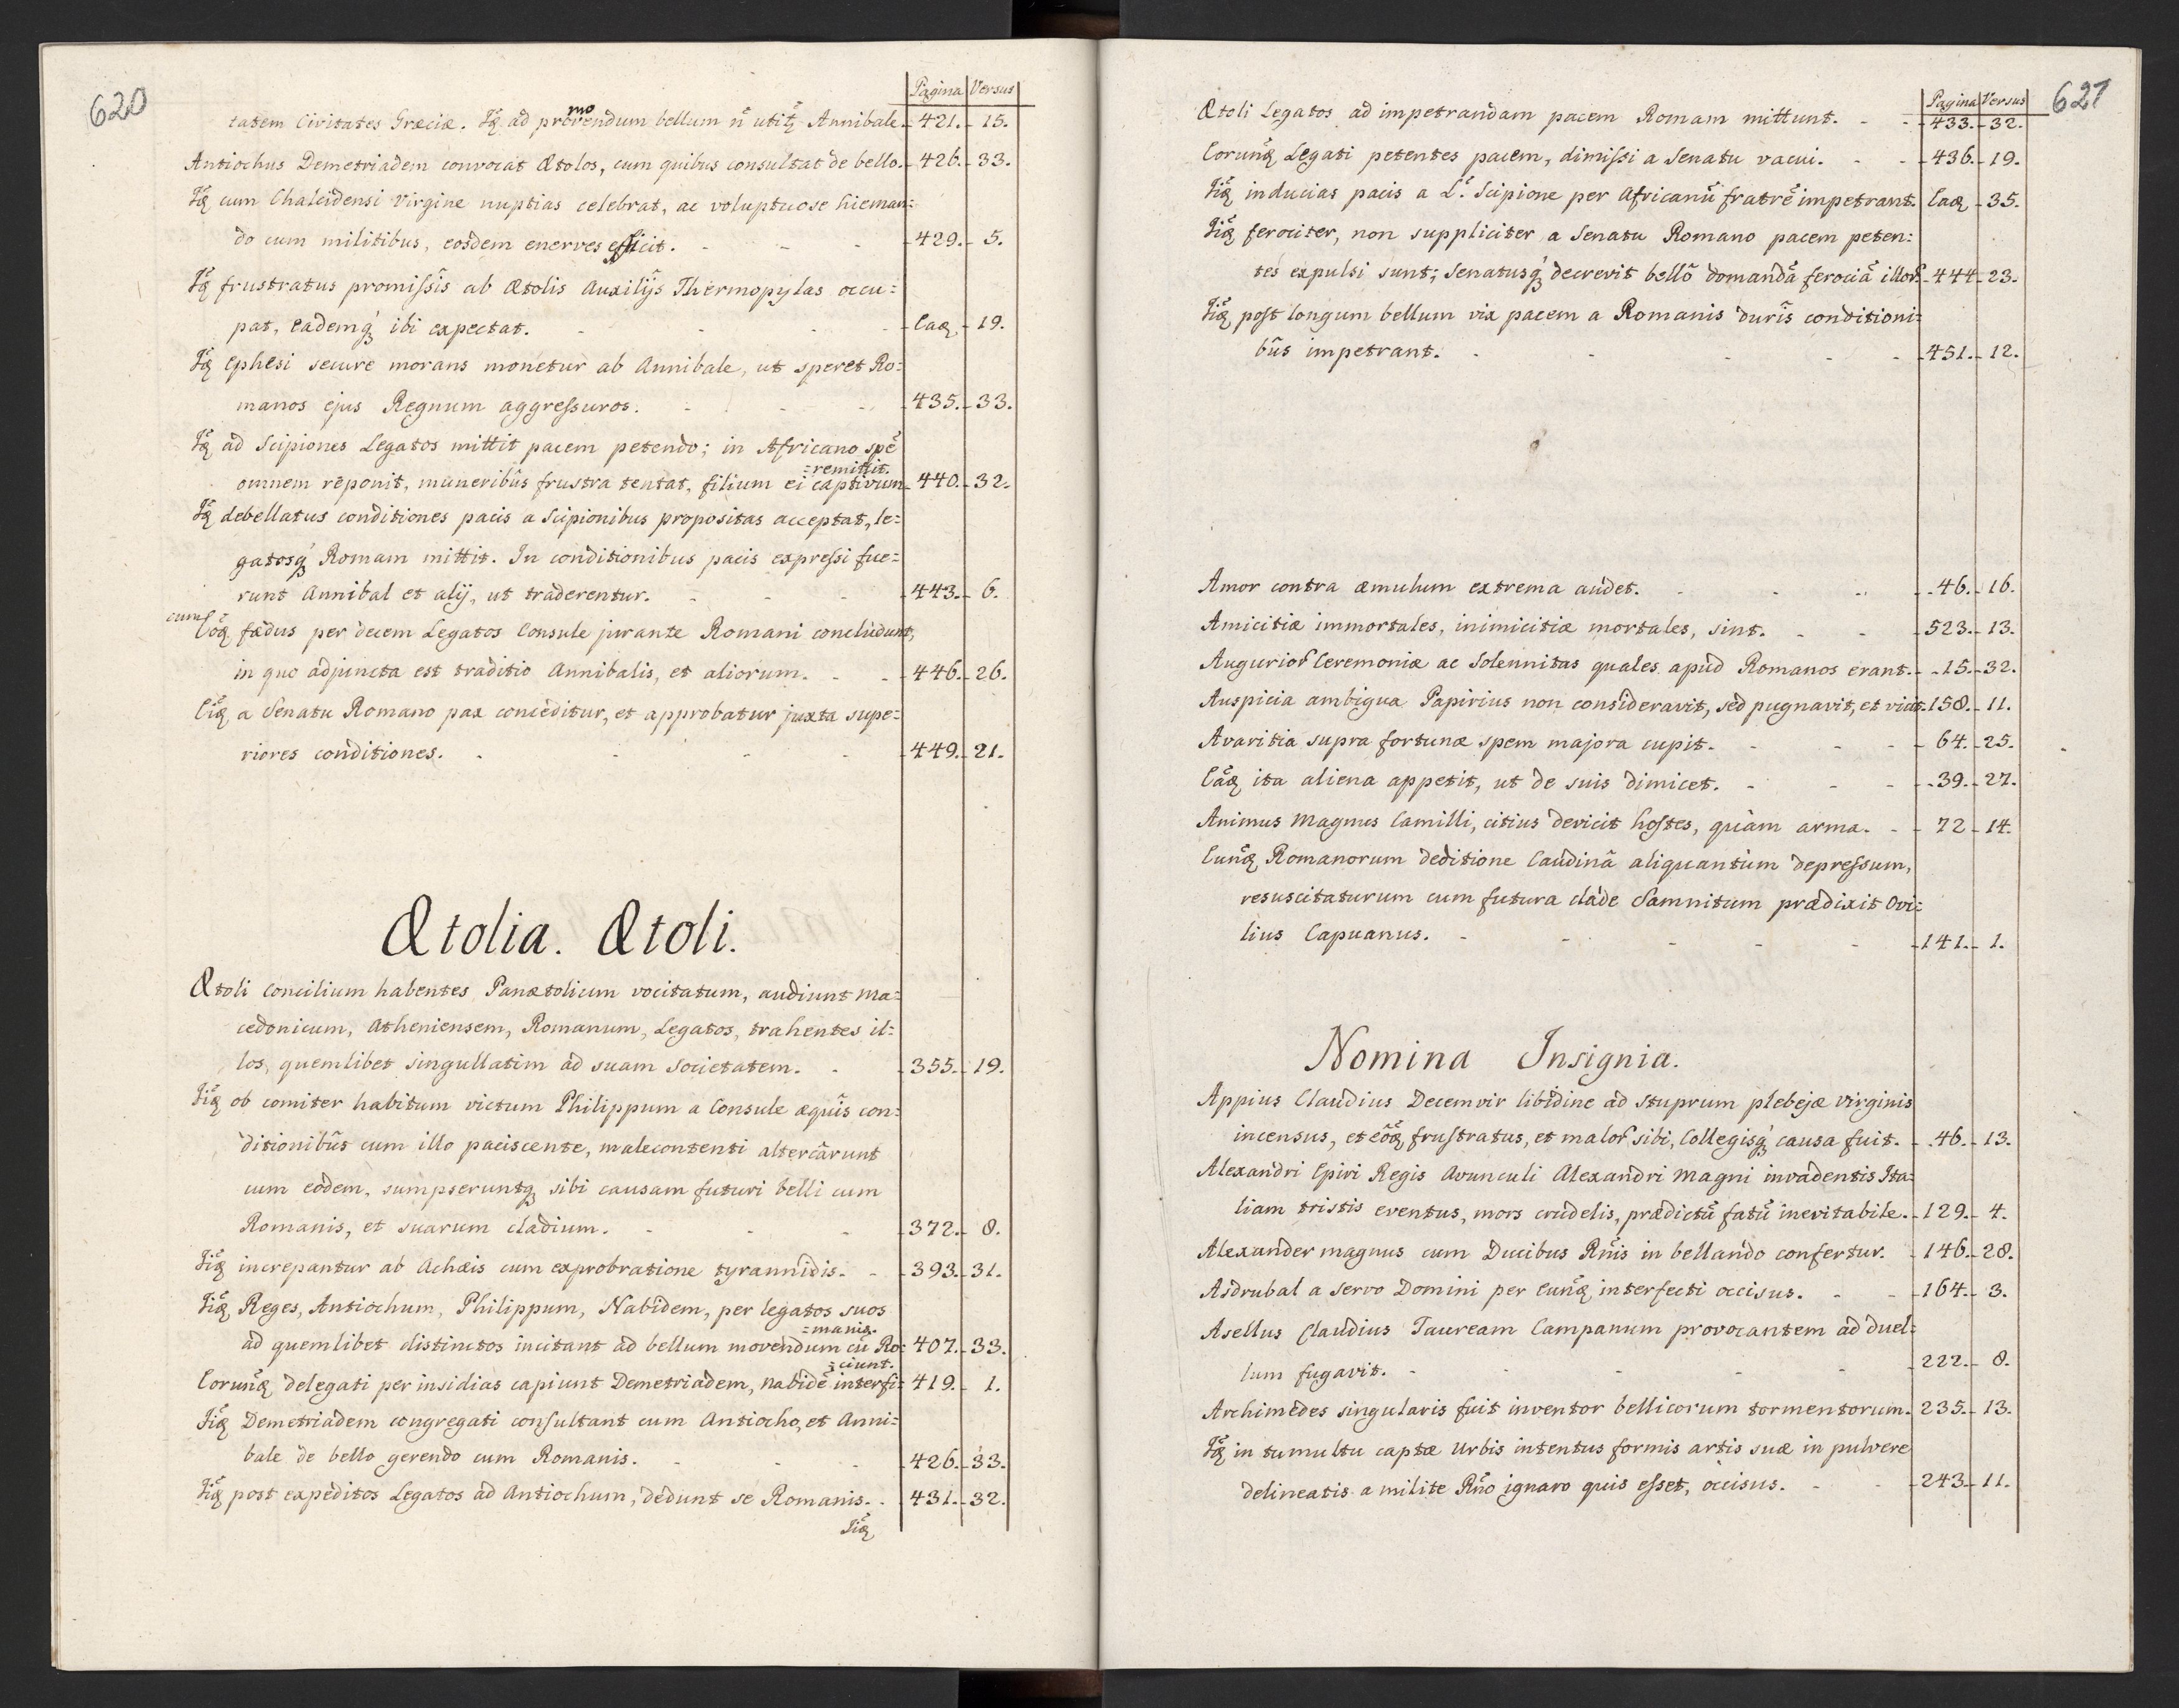 620
Pagina Versus
tatem Civitates Græciæ. Iẽ ad promovendum bellum ñ utitꝫ Annibale. 421. 15.
Antiochus Demetriadem convocat Ætolos, cum quibus consultat de bello. 426. 33.
Iẽꝗ cum Chalcidensi Virgine nuptias celebrat, ac voluptuose hieman=
do cum militibus, eosdem enerves efficit. 429. 5.
Iẽꝗ frustratus promissis ab Ætolis Auxilijs Thermopylas occu=
pat, eademꝗ ibi expectat. Eaꝗ 19.
Iẽꝗ Ephesi secure morans monetur ab Annibale, ut speret Ro=
manos ejus Regnum aggressuros. 435. 33.
Iẽꝗ ad Scipiones Legatos mittit pacem petendo; in Africano spẽ
=remittit.
omnem reponit, muneribûs frustra tentat, filium ei captivum 440. 32.
Iẽꝗ debellatus conditiones pacis a Scipionibus propositas acceptat, le=
gatosꝗ Romam mittit. In conditionibus pacis expressi fue=
runt Annibal et alij, ut traderentur. 443. 6.
cum Eõꝗ fædus per decem Legatos Consule jurante Romani concludunt,
in quo adjuncta est traditio Annibalis, et aliorum. 446. 26.
Eĩꝗ a Senatu Romano pax conceditur, et approbatur juxta supe=
riores conditiones. 449. 21.
Ætolia. Ætoli.
Ætoli Concilium habentes Panætolicum vocitatum, audiunt Ma=
cedonicum, Atheniensem, Romanum, Legatos, trahentes il=
los, quemlibet singullatim ad suam Societatem. 355. 19.
Iiẽꝗ ob comiter habitum victum Philippum a Consule æquis con=
ditionibûs cum illo paciscente, malecontenti altercârunt
cum eodem, sumpseruntꝗ sibi causam futuri belli cum
Romanis, et suarum cladium. 372. 8.
Iiẽꝗ increpantur ab Achæis cum exprobratione tyrannidis. 393. 31.
Iiẽꝗ Reges, Antiochum, Philippum, Nabidem, per legatos suos
=manis.
ad quemlibet distinctos incitant ad bellum movendum cũ Ro= 407. 33.
=ciunt.
Eorunẽꝗ delegati per insidias capiunt Demetriadem, Nabidẽ interfi= 419. 1.
Iiẽꝗ Demetriadem congregati consultant cum Antiocho, et Anni=
bale de bello gerendo cum Romanis. 426. 33.
Iiẽꝗ post expeditos Legatos ad Antiochum, dedunt se Romanis. 431. 32.
Iiẽꝗ
627
Pagina Versus
Ætoli Legatos ad impetrandam pacem Romam mittunt. 433. 32.
Eorunẽꝗ Legati petentes pacem, dimissi a Senatu vacui. 436. 19.
Iiẽꝗ inducias pacis a L. Scipione per Africanũ fratrẽ impetrant. Eaꝗ 35.
Iiẽꝗ ferociter, non suppliciter a Senatu Romano pacem peten=
tes expulsi sunt; Senatusꝗ decrevit bellõ domandã ferociã illoꝝ. 444. 23.
Iiẽꝗ post longum bellum vix pacem a Romanis duris conditioni=
bûs impetrant. 451. 12.
Amor contra æmulum extrema audet. 46. 16.
Amicitiæ immortales, inimicitiæ mortales, sint. 523. 13.
Augurioꝝ Ceremoniæ ac Solennitas quales apud Romanos erant. 15. 32.
Auspicia ambigua Papirius non consideravit, sed pugnavit, et vicit. 158. 11.
Avaritia supra fortunæ spem majora cupit. 64. 25.
Eãꝗ ita aliena appetit, ut de suis dimicet. 39. 27.
Animus Magnus Camilli, citius devicit hostes, quàm arma. 72 14.
Eunẽꝗ Romanorum deditione Caudinâ aliquantùm depressum,
resuscitaturum cum futura clade Samnitum prædixit Ovi=
lius Capuanus. 141. 1.
Nomina Insignia.
Appius Claudius Decemvir libidine ad stuprum plebejæ virginis
incensus, et eõꝗ frustratus, et maloꝝ sibi, Collegisꝗ causa fuit. 46. 13.
Alexandri Epiri Regis Avunculi Alexandri Magni invadentis Ita=
liam tristis eventus, mors crudelis, prædictũ fatũ inevitabile. 129. 4.
Alexander magnus cum Ducibus Rñis in bellando confertur. 146. 28.
Asdrubal a servo Domini per Eunẽꝗ interfecti occisus. 164. 3.
Asellus Claudius Tauream Campanum provocantem ad duel=
lum fugavit. 222. 8.
Archimedes singularis fuit inventor bellicorum tormentorum. 235. 13.
Iẽꝗ in tumultu captæ Urbis intentus formis artis suæ in pulvere
delineatis a milite Rño ignaro quis esset, occisus. 243. 11.